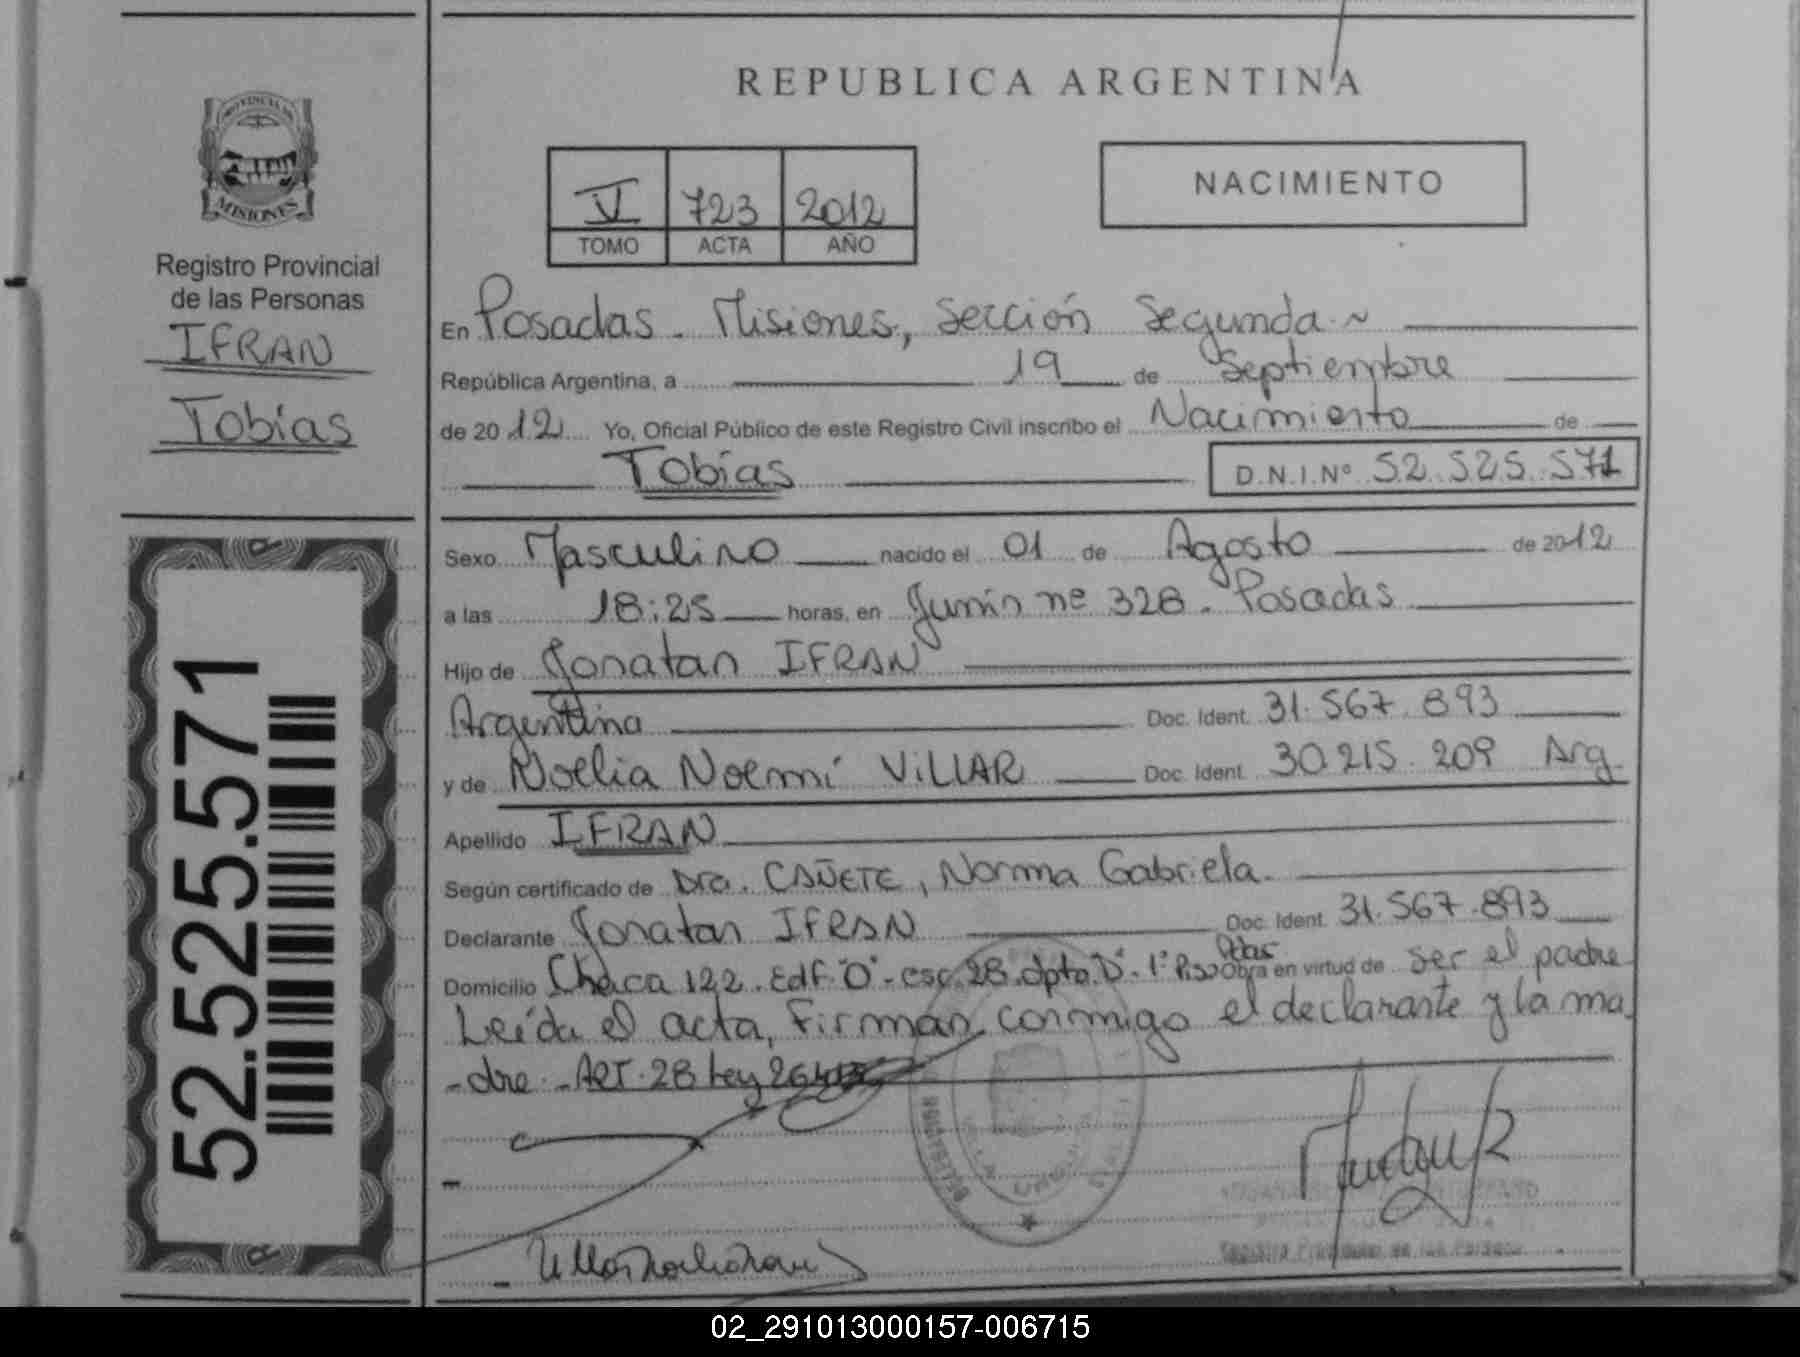 REPUBLICA ARGENTINA
PROVINCIA DE
MISIONES
Registro Provincial
de las Personas
IFRAN
Tobías
V 723 2012
TOMO ACTA AÑO
NACIMIENTO
En Posadas - Misiones, Sección Segunda
República Argentina, a 19 de Septiembre
de 2012 Yo, Oficial Público de este Registro Civil inscribo el Nacimiento de
Tobías D.N.I.Nº 52.525.571
Sexo Masculino nacido el 01 de Agosto de 2012
a las 18:25 horas, en Junín nº 328 - Posadas
Hijo de Jonatan IFRAN
Argentina Doc. Ident. 31.567.893
y de Noelia Noemí VILLAR Doc. Ident. 30.215.209 Arg.
Apellido IFRAN
Según certificado de Dra. CAÑETE, Norma Gabriela.
Declarante Jonatan IFRAN Doc. Ident. 31.567.893
Domicilio Chaca 122. Edf. "O" - esc. 28. dpto. D - 1º Piso Pdas Obra en virtud de ser el padre
Leída el acta, firman conmigo el declarante y la ma
-dre.- ART. 28 Ley
52.525.571
02_291013000157-006715